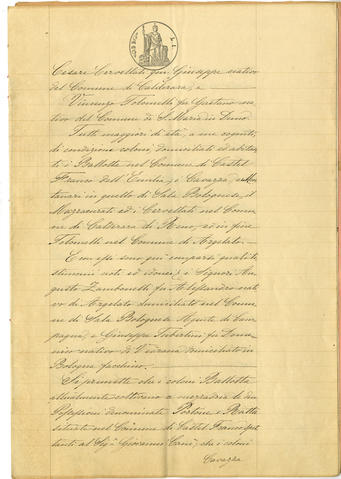 Cesare Cervellati fu Giuseppe nativo
del Comune di Calderara, e
Vincenzo Tolomelli fu Gaetano na-
tivo del Comune di S. Maria in Duno.
Tutti maggiori di età, a me cogniti,
di condizione coloni, domiciliati ed abitan-
ti i Ballotta nel Comune di Castel
Franco dell'Emilia, i Cavazza, e Mon-
tanari in quello di Sala Bolognese, il
Mazzacurati ed i Cervellati nel Comu-
ne di Calderara di Reno, ed in fine
Tolomelli nel Comune di Argelato.
E con essi sono qui comparsi quali te-
stimoni noti ed idonei, i Signori Au-
gusto Zambonelli fu Alessandro nati-
vo di Argelato domiciliato nel Comu-
ne di Sala Bolognese Agente di Cam-
pagna, e Giuseppe Tubertini fu
nativo di Vedrana domiciliato in
Bologna facchino.
Si premette che i coloni Ballotta
attualmente coltivano a mezzadria le due
Possessioni denominate Portone e
situate nel Comune di Castel Franco spet-
tanti al Sig. Giovanni che i coloni
Cavazza